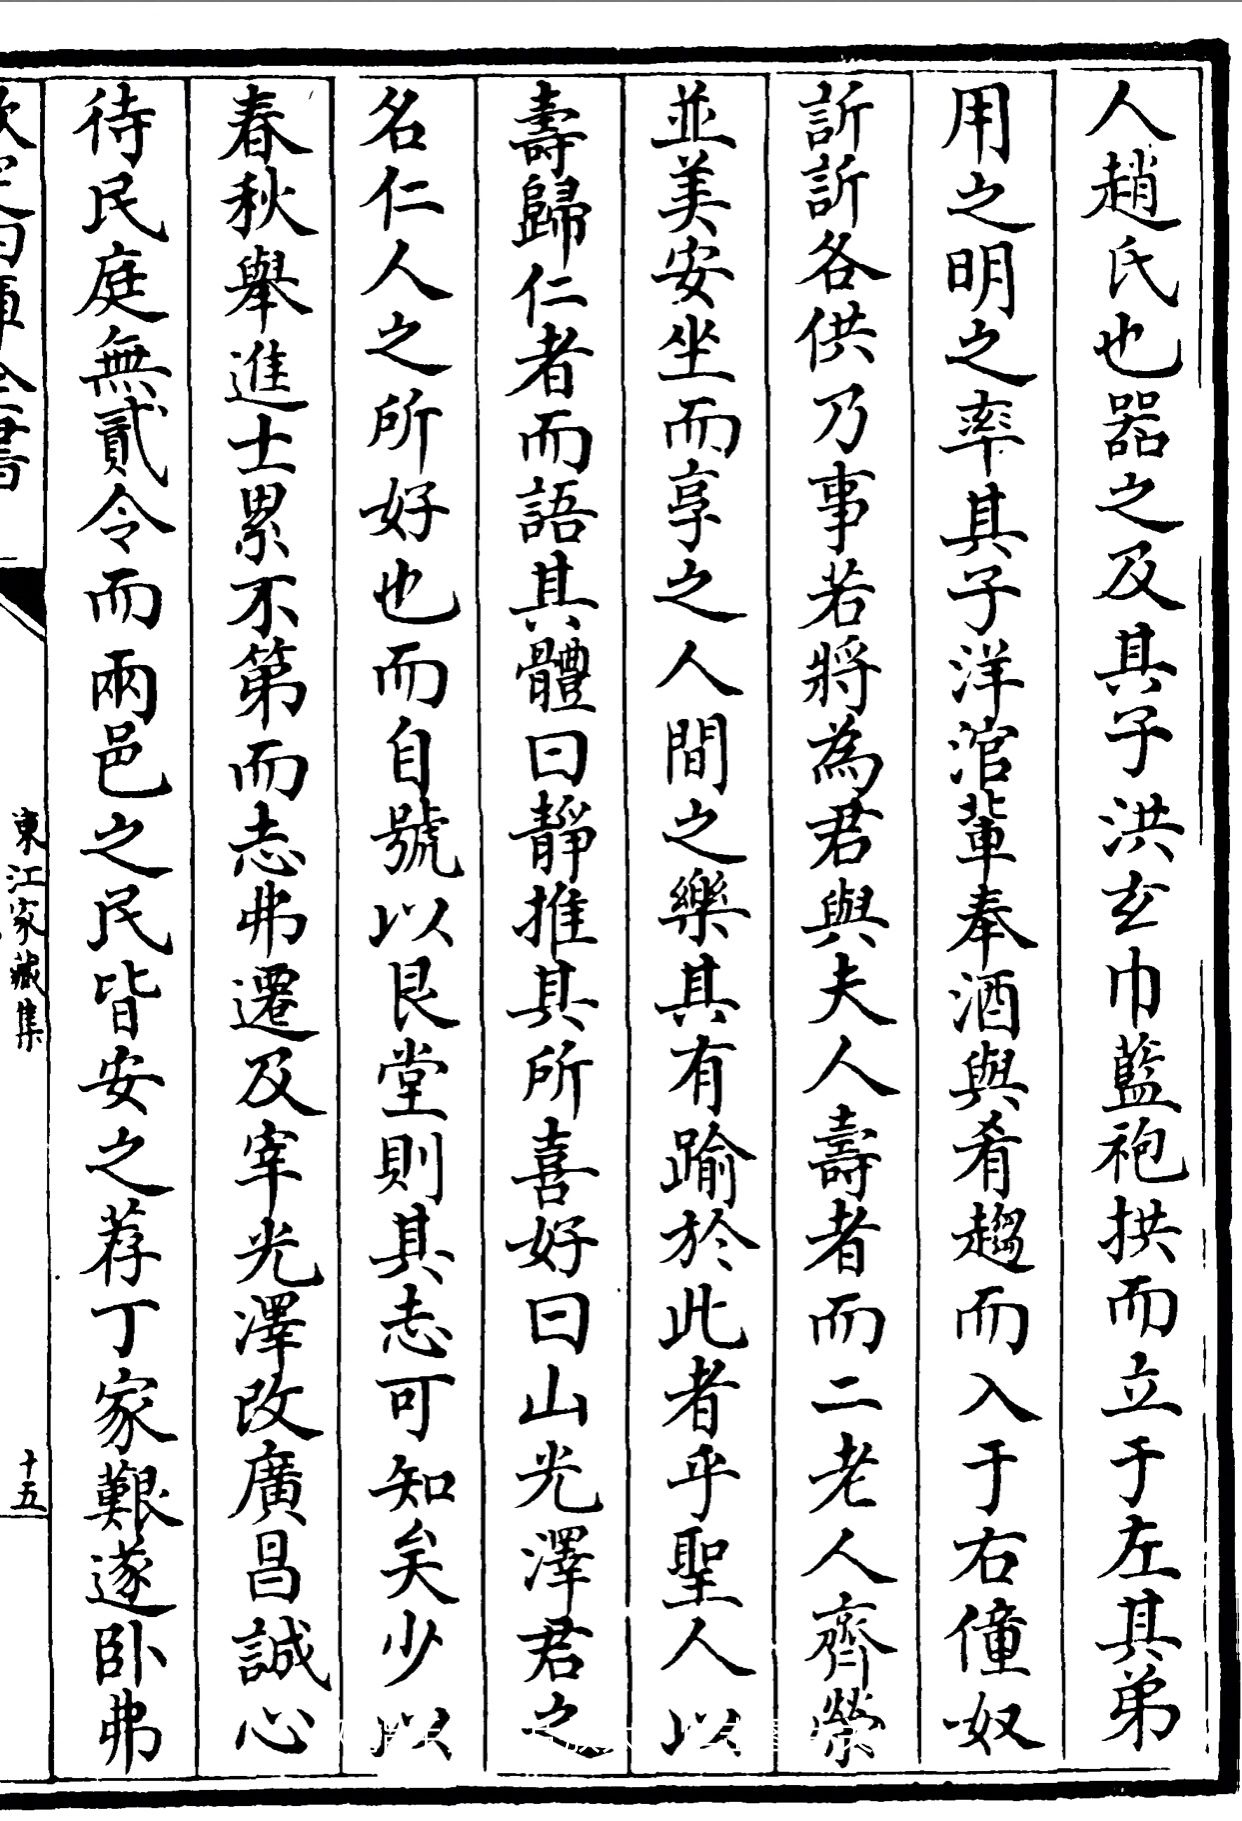 人趙氏也器之及其子洪玄巾藍袍拱而立于左其弟
用之明之率其子洋涫輩奉酒與肴趨而入于右僮奴
訢訢各供乃事若將為君與夫人壽者而二老人齊榮
並美安坐而享之人間之樂其有踰於此者乎聖人以
壽歸仁者而語其體曰靜推其所喜好曰山光澤君之
名仁人之所好也而自號以艮堂則其志可知矣少以
春秋舉進士累不第而志弗遷及宰光澤改廣昌誠心
待民庭無貳令而兩邑之民皆安之荐丁家艱遂卧弗
欽定四庫全書
東江家藏集
十五